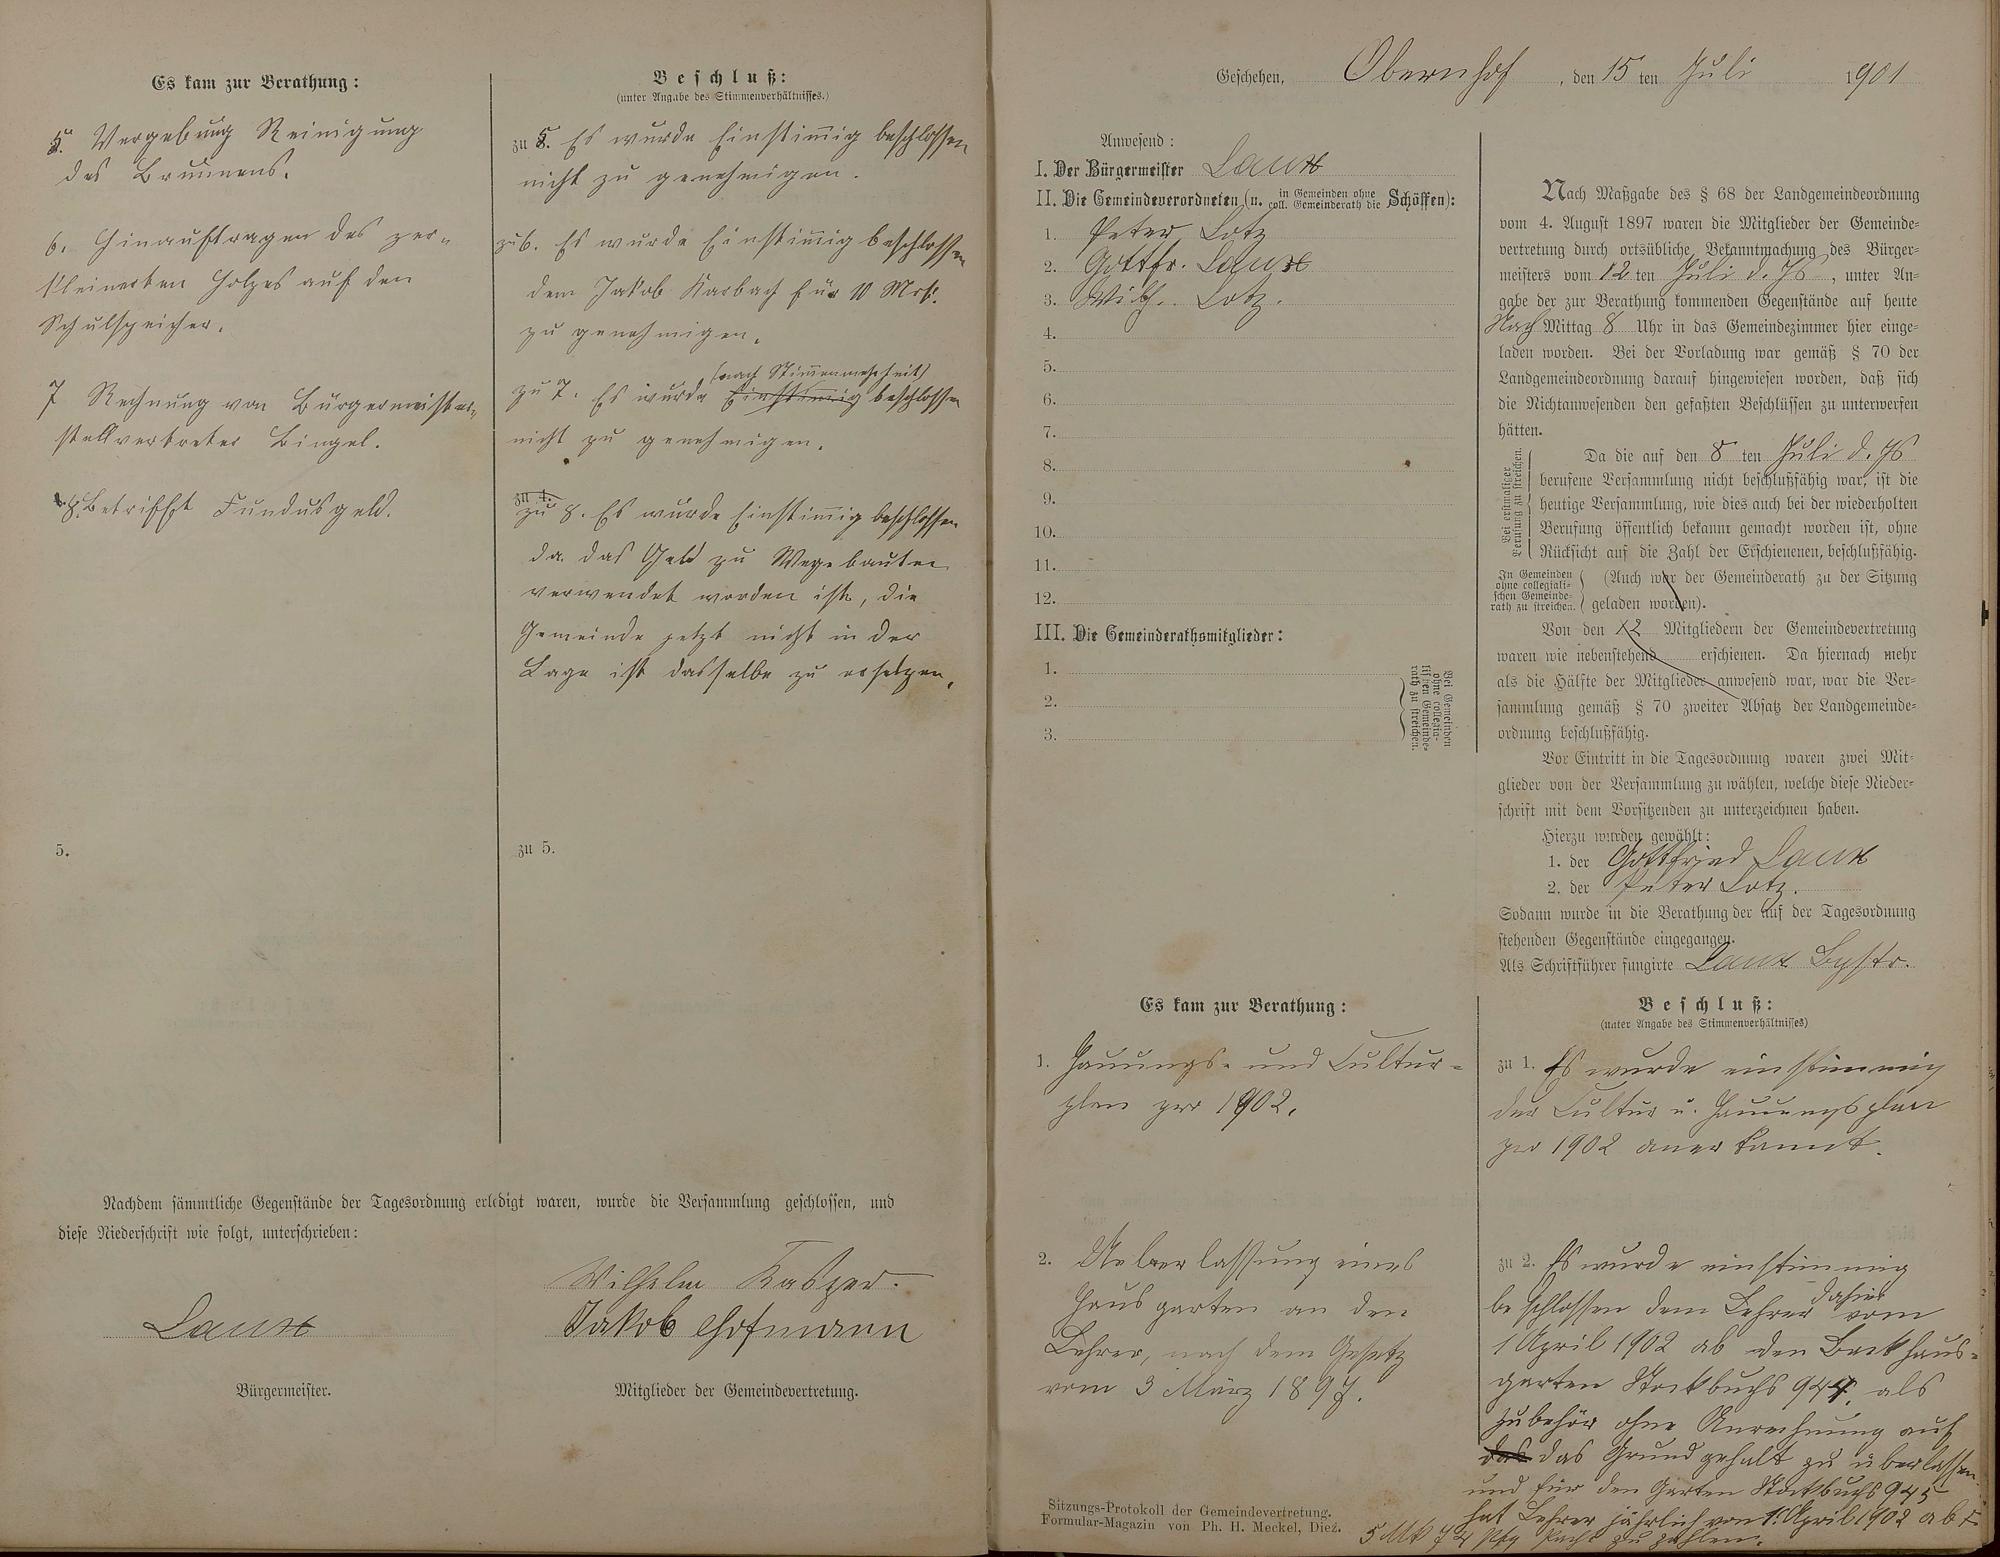 Es kam zur Berathung:
5. Vergebung Reinigung
des Brunnens.
6. Hinauftragen des zer-
kleinerten Holzes auf den
Schulspeicher.
7 Rechnung von Bürgermeister-
stellvertreter Bingel.
8. Betrifft Fundusgeld.
5.
Beschluß:
(unter Angabe des Stimmenverhältnisses.)
zu 5. Es wurde Einstimmig beschlossen
nicht zu genehmigen.
zu 6. Es wurde Einstimmig beschlossen
dem Jakob Karbach für 10 Mrk.
zu genehmigen.
(nach Stimmenmehrheit)
zu 7. Es wurde Einstimmig beschlossen
nicht zu genehmigen.
zu 4.
zu 8. Es wurde Einstimmig beschlossen
da das Geld zu Wegebauten
verwendet worden ist, die
Gemeinde jetzt nicht in der
Lage ist dasselbe zu ersetzen.
zu 5.
Nachdem sämmtliche Gegenstände der Tagesordnung erledigt waren, wurde die Versammlung geschlossen, und
diese Niederschrift wie folgt, unterschrieben:
Wilhelm Kasper.
Laux
Jakob Hofmann
Bürgermeister.
Mitglieder der Gemeindevertretung.
Geschehen, Obernhof, den 15 ten Juli 1901
Anwesend:
I. Der Bürgermeister Laux
II. Die Gemeindeverordneten (u. in Gemeinden ohne coll. Gemeinderath die Schöffen):
1. Peter Lotz
2. Gottfr. Laux
3. Wilh. Lotz.
4.
5.
6.
7.
8.
9.
10.
11.
12.
III. Die Gemeinderathsmitglieder:
1.
2.
3.
Bei Gemeinden
ohne collegia-
lischen Gemeinde-
rath zu streichen.
Nach Maßgabe des § 68 der Landgemeindeordnung
vom 4. August 1897 waren die Mitglieder der Gemeinde-
vertretung durch ortsübliche Bekanntmachung des Bürger-
meisters vom 12 ten Juli d. Js, unter An-
gabe der zur Berathung kommenden Gegenstände auf heute
Nach Mittag 8 Uhr in das Gemeindezimmer hier einge-
laden worden. Bei der Vorladung war gemäß § 70 der
Landgemeindeordnung darauf hingewiesen worden, daß sich
die Nichtanwesenden den gefaßten Beschlüssen zu unterwerfen
hätten.
Bei erstmaliger
Berufung zu streichen.
Da die auf den 8 ten Juli d. Js
berufene Versammlung nicht beschlußfähig war, ist die
heutige Versammlung, wie dies auch bei der wiederholten
Berufung öffentlich bekannt gemacht worden ist, ohne
Rücksicht auf die Zahl der Erschienenen, beschlußfähig.
In Gemeinden
ohne collegiali-
schen Gemeinde-
rath zu streichen.
(Auch war der Gemeinderath zu der Sitzung
geladen worden).
Von den 12 Mitgliedern der Gemeindevertretung
waren wie nebenstehend erschienen. Da hiernach mehr
als die Hälfte der Mitglieder anwesend war, war die Ver-
sammlung gemäß § 70 zweiter Absatz der Landgemeinde-
ordnung beschlußfähig.
Vor Eintritt in die Tagesordnung waren zwei Mit-
glieder von der Versammlung zu wählen, welche diese Nieder-
schrift mit dem Vorsitzenden zu unterzeichnen haben.
Hierzu wurden gewählt:
1. der Gottfried Laux
2. der Peter Lotz.
Sodann wurde in die Berathung der auf der Tagesordnung
stehenden Gegenstände eingegangen.
Als Schriftführer fungirte Laux Bgstr.
Es kam zur Berathung:
1. Hauungs- und Cultur-
plan pro 1902.
2. Ueberlassung eines
Hausgarten an den
Lehrer, nach dem Gesetz
vom 3 März 1897.
Beschluß:
(unter Angabe des Stimmenverhältnisses)
zu 1. Es wurde einstimmig
der Cultur u. Hauungsplan
pro 1902 anerkannt.
zu 2. Es wurde einstimmig
beschlossen dem Lehrer dahier vom
1 April 1902 ab den Backhaus-
garten Stockbuchs 944, als
Zubehör ohne Anrechnung auf
das das Grundgehalt zu überlassen
und für den Garten Stockbuchs 945
hat Lehrer jährlich vom 1. April 1902 ab
5 Mk 74 Pfg Pacht zu zahlen.
Sitzungs-Protokoll der Gemeindevertretung.
Formular-Magazin von Ph. H. Meckel, Diez.